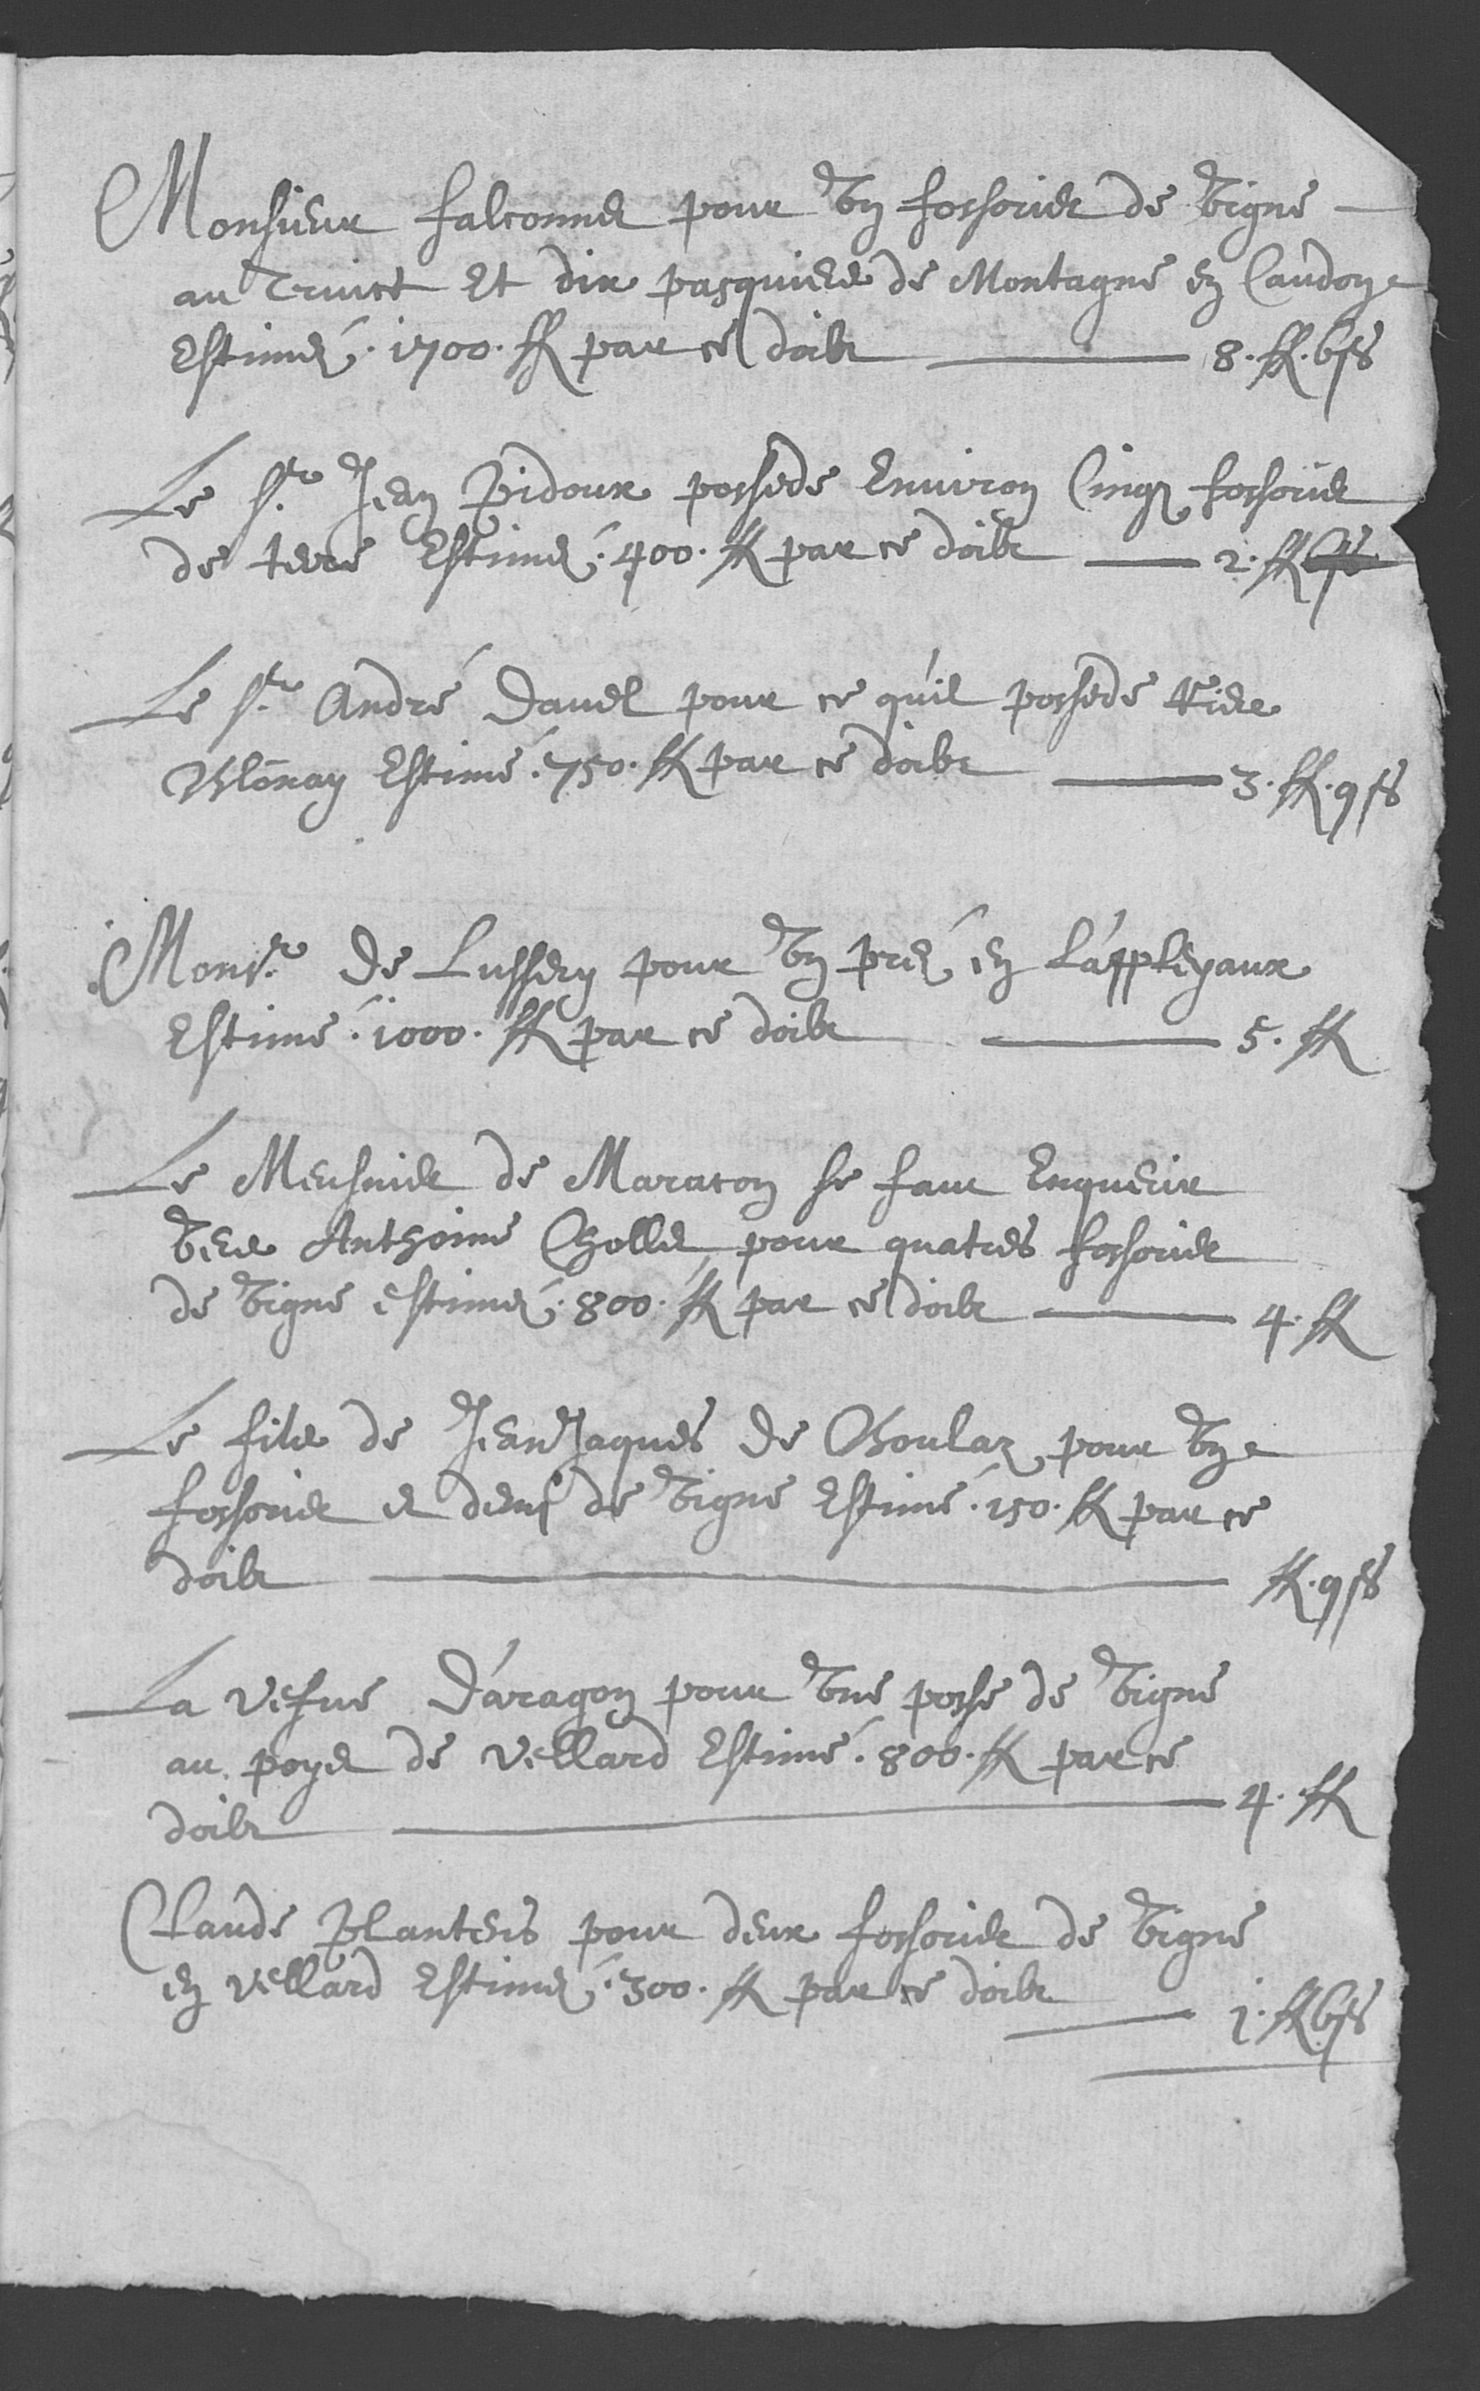 Monsieur Falconnet pour vn fossorier de vigne
au Truict Et dix pasquiers de Montagne en Caudoz
Estimés . 1700 . ff par ce doibt 8 . ff . 6 ss
Le Sr. Jean Pidoux possede Environ Cinq fossorier
de terre Estimés . 400 . ff par ce doibt 2 . ff
Le Sr. André Davel pour ce qu'il possede riere
Blonay Estimé . 750 . ff par ce doibt 3 . ff . 9 ss
Monsr. De Lussery pour vn pré en L'appleyaux
Estimé . 1000 . ff par ce doibt 5 . ff
Le Meusnier de Maracon se faut Enquerir
vers Anthoine Chollet pour quatres fossorier
de vigne estimés . 800 . ff par ce doibt 4 . ff
Le fils de Jean Jaques De Choulaz pour vn
fossorier et demi de vigne Estimé . 150 . ff par ce
doibt ff . 9 ss
La vefue D'aragon pour vne posse de vigne
au poyet de Vellard Estimé . 800 . ff par ce
doibt 4 . ff
Claude Planteis pour deux fossorier de vigne
en Vellard Estimés . 300 . ff par ce doibt 1 . ff 6 ss